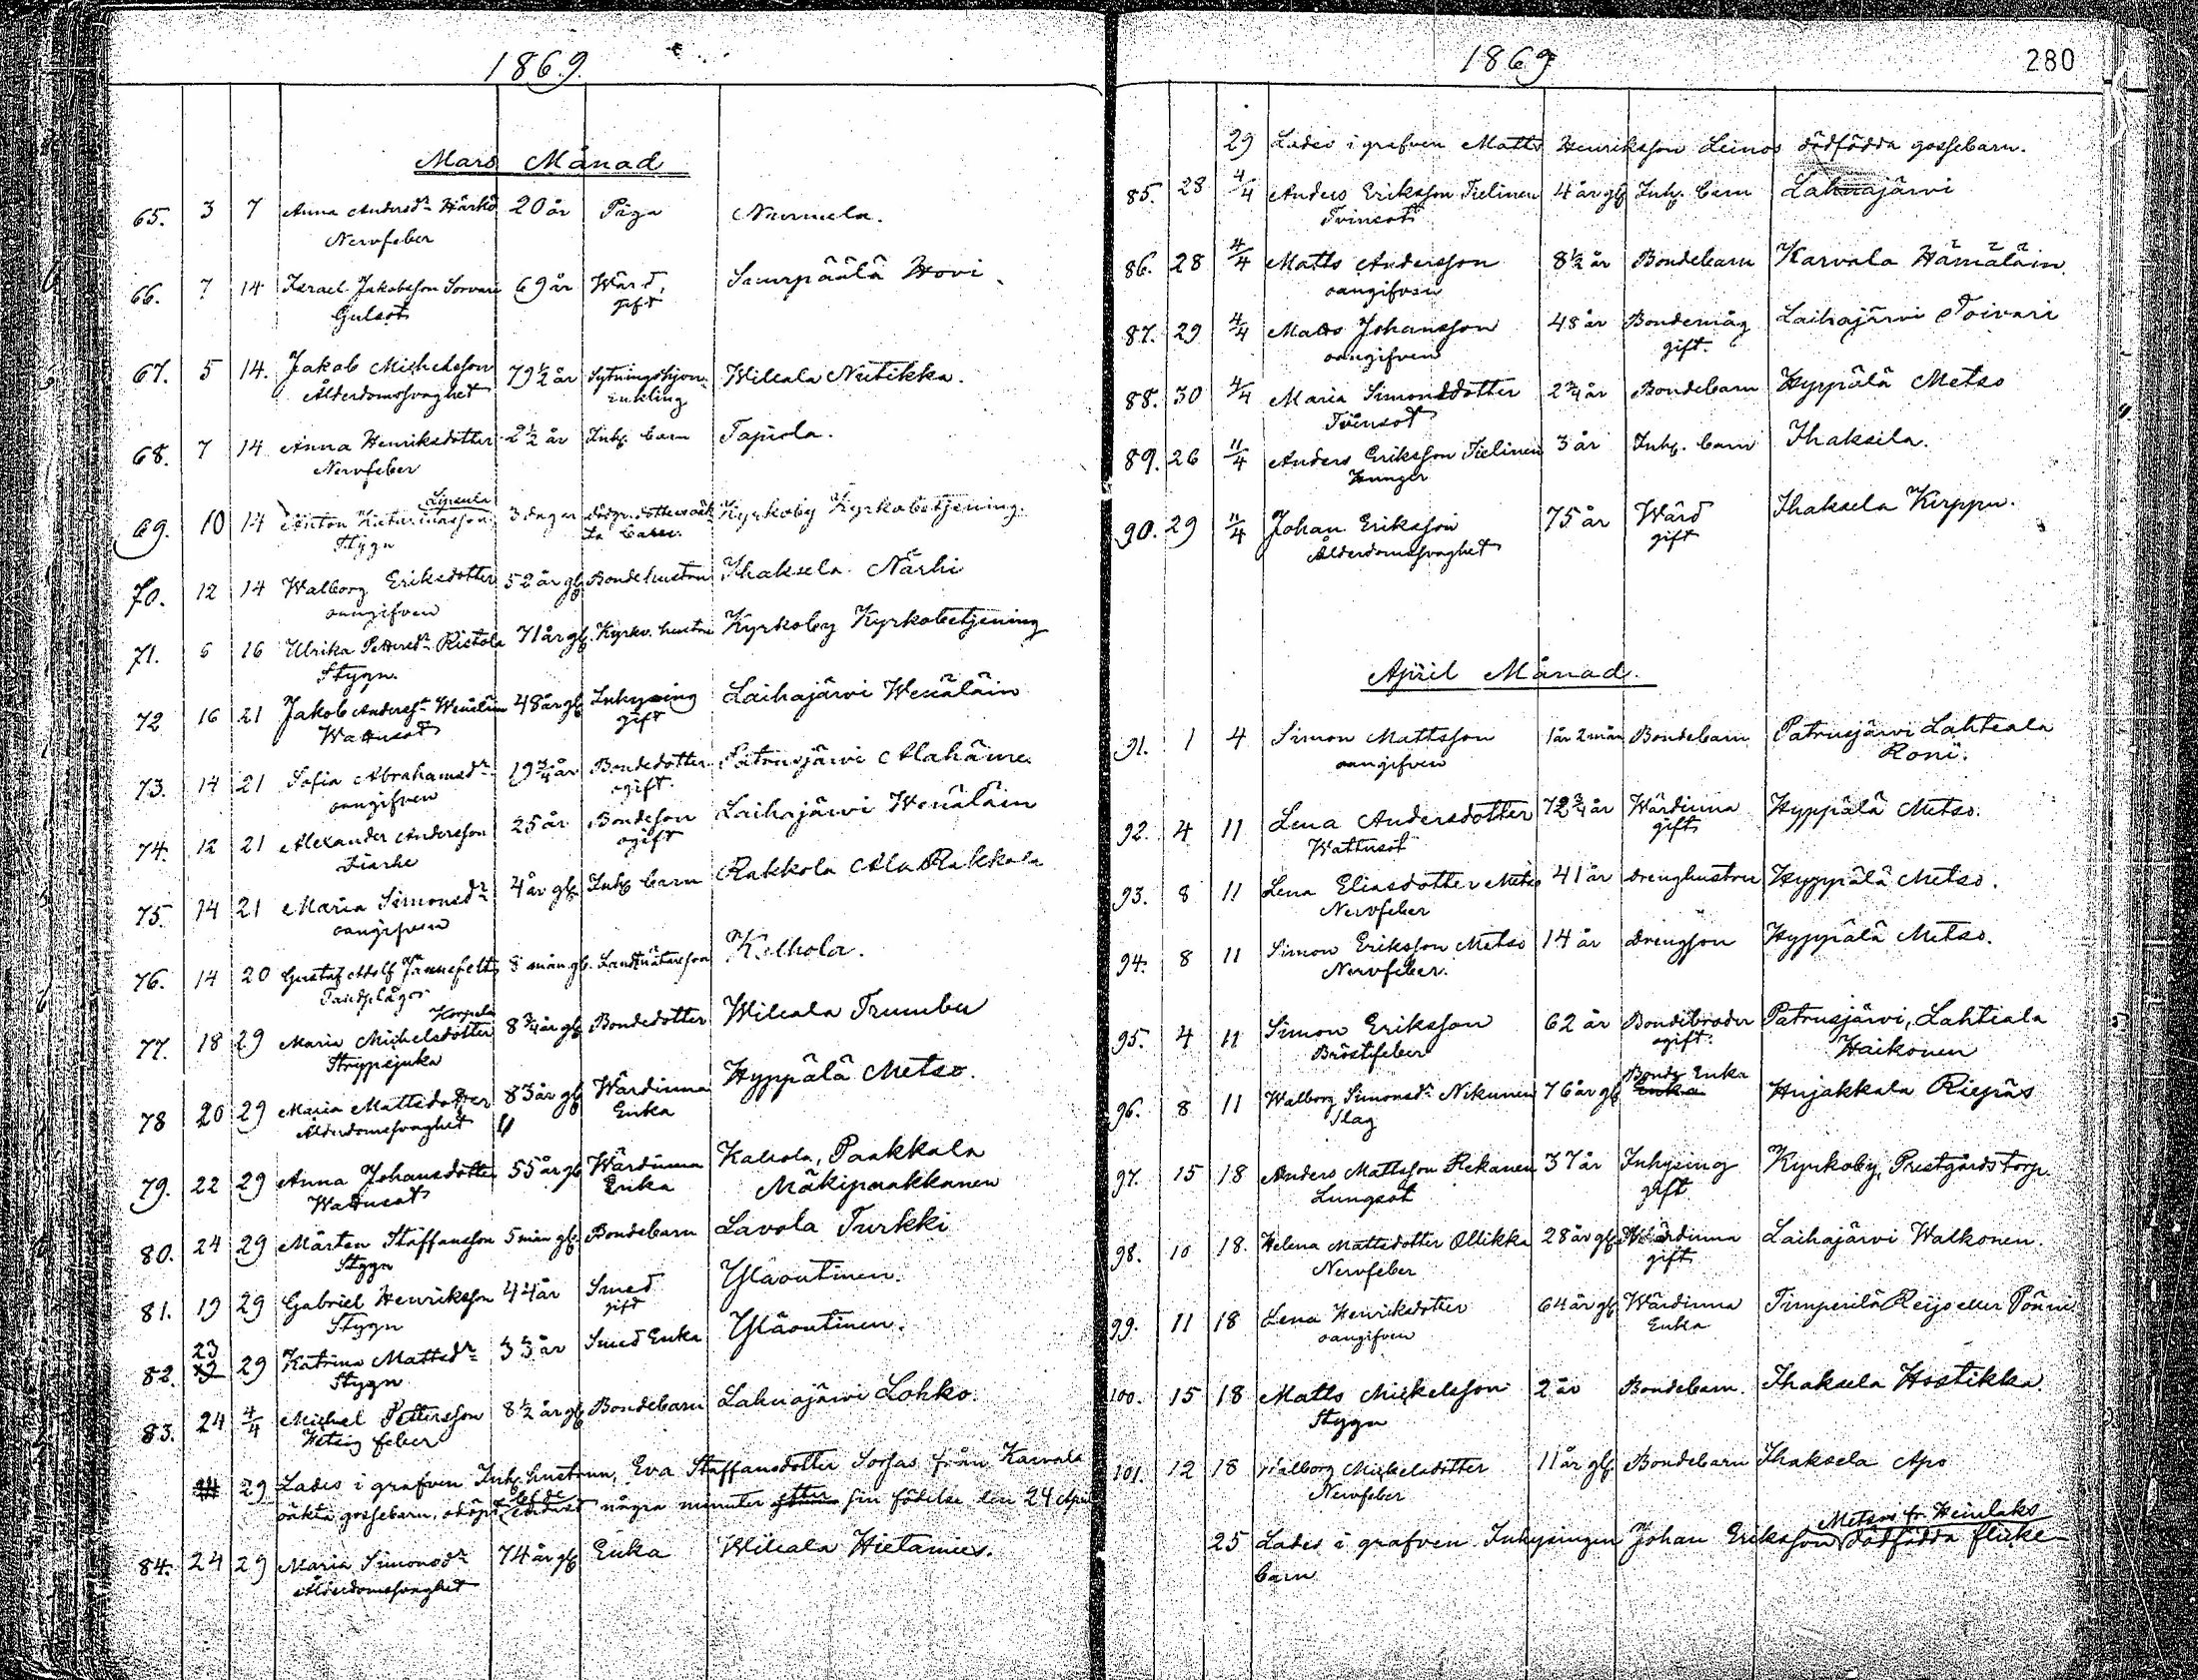 1869.
Mars Månad
65. 3 7 Anna Andersdr Härkö 20 år Piga Nurmela.
Nervfeber
66. 7 14 Israel Jakobsson Sorvari 69 år Wärd, Suurpäälä Hovi
Gulsot gift
67. 5 14. Jakob Michelsson 79 1/2 år Sytningshjon Wilcala Nutikka.
Ålderdomssvaghet Enkling
68. 7 14 Anna Henriksdotter 2 1/2 år Inh. barn Tapiola.
Nervfeber
69. 10 14 Anton 3 dagar Kyrkoby Kyrkobetjening.
Stygn barn.
70. 12 14 Walborg Eriksdotter 52 år gl. Bondehustru Ihaksela Närhi
oangifven
71. 6 16 Ulrika Pettersdr Ristola 71 år gl. Kyrkv. hustru Kyrkoby Kyrkobetjening
Stygn.
72 16 21 Jakob Anderss. Wenäläin 48 år gl. Inhysing Laihajärvi Wenäläin
Wattusot gift
73. 14 21 Sofia Abrahamsdr 19 3/4 år Bondedotter Patrusjärvi Alahäme.
oangifven ogift.
74. 12 21 Alexander Andersson 25 år Bondeson Laihajärvi Wenäläin
Diarhe ogift
75. 14 21 Maria Simonsdr 4 år gl. Inh. barn Rakkola Ala Rakkola
oangifven
76. 14 20 Gustaf Adolf Jännefelt 8 mån gl. Landmätareson Kelhola.
Tandplågor
Korpela
77. 18 29 Maria Michelsdotter 8 3/4 år gl. Bondedotter Wilcala Trumbu
Strypsjuka
78 20 29 Maria Mattsdotter 83 år gl. Wärdinna Hyppälä Metso.
Ålderdomssvaghet Enka
79. 22 29 Anna Johansdotter 55 år gl. Wärdinna Kaliola, Paakkala
Wattusot Enka Mäkipaakkanen
80. 24 29 Mårten Staffansson 5 mån gl. Bondebarn Lavola Turkki
Stygn
81. 19 29 Gabriel Henriksson 44 år Smed Yläoutinen.
Stygn gift
23
82. 29 Katrina Mattsdr 33 år Smed Enka Yläoutinen.
Stygn
83. 24 4/4 Michel Pettersson 8 1/2 år gl. Bondebarn Lahnajärvi Lohko.
Hetsig feber
29 Lades i grafven Inh. hustrun Eva Staffansdotter Sorsas från Karvala
oäkta gossebarn, odöpt lefde endast några minuter efter sin födelse den 24 April
84. 24 29 Maria Simonsdr 74 år gl. Enka Wilcala Hietamies.
Ålderdomssvaghet
1869
280
29 Lades i grafven Matts Henriksson Leinos dödfödda gossebarn.
85. 28 4/4 Anders Eriksson Tielinen 4 år gl. Inh. barn Lahnajärvi
Tvinsot
86. 28 4/4 Matts Andersson 8 1/2 år Bondebarn Karvala Hämäläin
oangifven
87. 29 4/4 Matts Johansson 48 år Bondemåg Laihajärvi Toivari
oangifven gift.
88. 30 4/4 Maria Simonsdotter 2 3/4 år Bondebarn Hyppälä Metso
Tvinsot
89. 26 11/4 Anders Eriksson Tielinen 3 år Inh. barn Ihaksila.
Hunger
90. 29 11/4 Johan Eriksson 75 år Wärd Ihaksela Kirppu.
Ålderdomssvaghet gift
April Månad.
91. 1 4 Simon Mattsson 1 år 2 mån Bondebarn Patrusjärvi Lahteala
oangifven Roni.
92. 4 11 Lena Andersdotter 72 3/4 år Wärdinna Hyppälä Metso.
Wattusot gift
93. 8 11 Lena Eliasdotter Metso 41 år Drenghustru Hyppälä Metso.
Nervfeber
94. 8 11 Simon Eriksson Metso 14 år Drengson Hyppälä Metso.
Nervfeber.
95. 4 11 Simon Eriksson 62 år Bondebroder Patrusjärvi, Lahtiala
Bröstfeber ogift. Haikonen
Bonde Enka
96. 8 11 Walborg Simonsdr Nikunen 76 år gl. Enka Hujakkala Riepäs
Slag
97. 15 18 Anders Mattsson Rekanen 37 år Inhysing Kyrkoby, Prestgårdstorp
Lungsot gift
98. 10 18. Helena Mattsdotter Ollikka 28 år gl. Wärdinna Laihajärvi Walkonen.
Nervfeber gift
99. 11 18 Lena Henriksdotter 64 år gl. Wärdinna Timperilä Reijo eller Pönni
oangifven Enka
100. 15 18 Matts Mickelsson 2 år Bondebarn. Ihaksela Hostikka.
Stygn
101. 12 18 Walborg Mickelsdotter 11 år gl. Bondebarn Ihaksela Apo
Nervfeber
Metsos fr. Heinlaks
25 Lades i grafven Inhysingen Johan Eriksson dödfödda flicke
barn